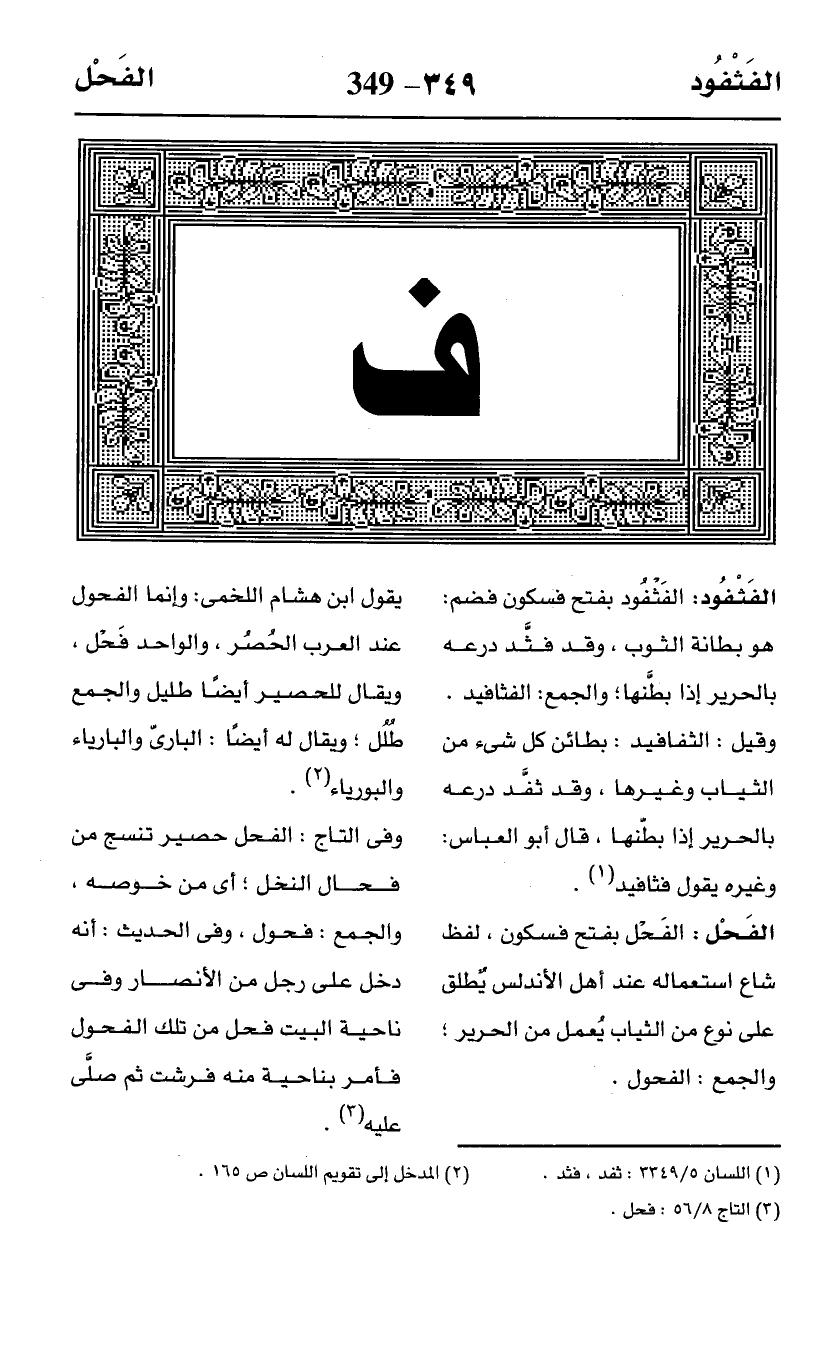 الفَثْفُود ٣٤٩ – 349 الفَحْل
ف
الفَثْفُود: الفَثْفُود بفتح فسكون فضم:
هو بطانة الثوب ، وقد فثَّد درعه
بالحرير إذا بطَّنها؛ والجمع: الفثافيد .
وقيل : الثفافيد : بطائن كل شىء من
الثياب وغيرها ، وقد ثفَّد درعه
بالحرير إذا بطّنها ، قال أبو العباس:
وغيره يقول فثافيد(١) .
الفَحْل : الفَحْل بفتح فسكون ، لفظ
شاع استعماله عند أهل الأندلس يُطلق
على نوع من الثياب يُعمل من الحرير ؛
والجمع : الفحول .
يقول ابن هشام اللخمى: وإنما الفحول
عند العرب الحُصُر ، والواحد فَحْل ،
ويقال للحصير أيضًا طليل والجمع
طُلُل ؛ ويقال له أيضًا : البارىّ والبارياء
والبورياء(٢) .
وفى التاج : الفحل حصير تنسج من
فحال النخل ؛ أى من خوصه ،
والجمع : فحول ، وفى الحديث : أنه
دخل على رجل من الأنصار وفى
ناحية البيت فحل من تلك الفحول
فأمر بناحية منه فرشت ثم صلَّى
عليه(٣) .
(١) اللسان ٣٣٤٩/٥ : ثفد ، فثد .
(٢) المدخل إلى تقويم اللسان ص ١٦٥ .
(٣) التاج ٥٦/٨ : فحل .